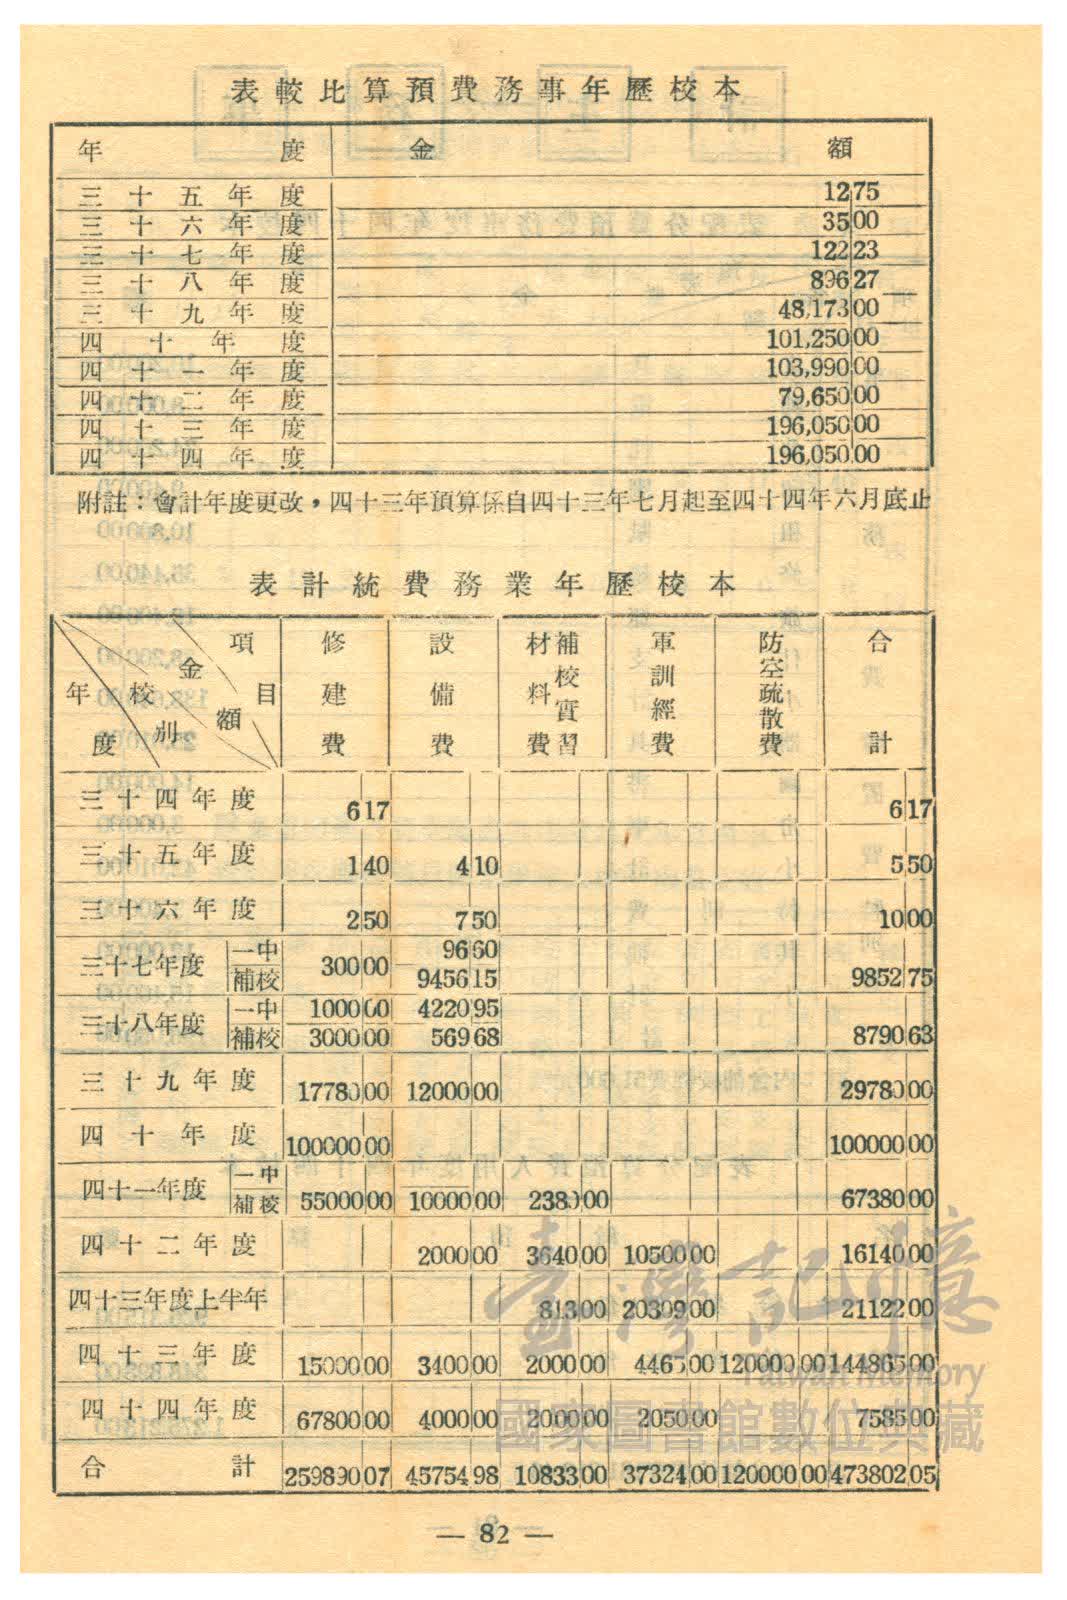 表較比算預費務事年歷校本
年度 金額
三十五年度 12 75
三十六年度 35 00
三十七年度 122 23
三十八年度 896 27
三十九年度 48,173 00
四十年度 101,250 00
四十一年度 103,990 00
四十二年度 79,650 00
四十三年度 196,050 00
四十四年度 196,050 00
附註：會計年度更改，四十三年預算係自四十三年七月起至四十四年六月底止
表計統費務業年歷校本
年度 校別 金額 項目 修建費 設備費 補校實習材料費 軍訓經費 防空疏散費 合計
三十四年度 6 17 6 17
三十五年度 1 40 4 10 5 50
三十六年度 2 50 7 50 10 00
三十七年度 一中 300 00 96 60
補校 9456 15 9852 75
三十八年度 一中 1000 00 4220 95
補校 3000 00 569 68 8790 63
三十九年度 17780 00 12000 00 29780 00
四十年度 100000 00 100000 00
四十一年度 一中
補校 55000 00 10000 00 2380 00 67380 00
四十二年度 2000 00 3640 00 10500 00 16140 00
四十三年度上半年 813 00 20309 00 21122 00
四十三年度 15000 00 3400 00 2000 00 4465 00 120000 00 144865 00
四十四年度 67800 00 4000 00 2000 00 2050 00 7585 00
合計 259890 07 45754 98 10833 00 37324 00 120000 00 473802 05
臺灣記憶
Taiwan Memory
國家圖書館數位典藏
— 82 —